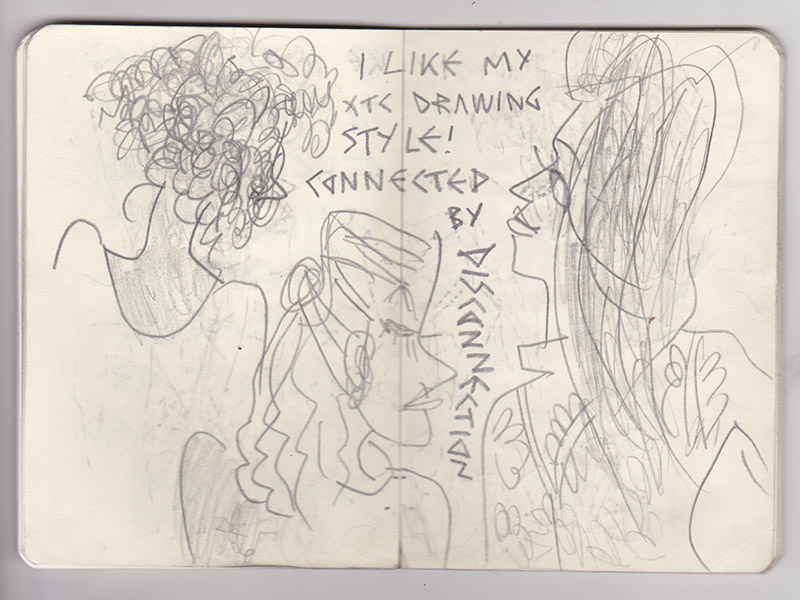 I LIKE MY
XTC DRAWING
STYLE!
CONNECTED
BY
DISCONNECTION